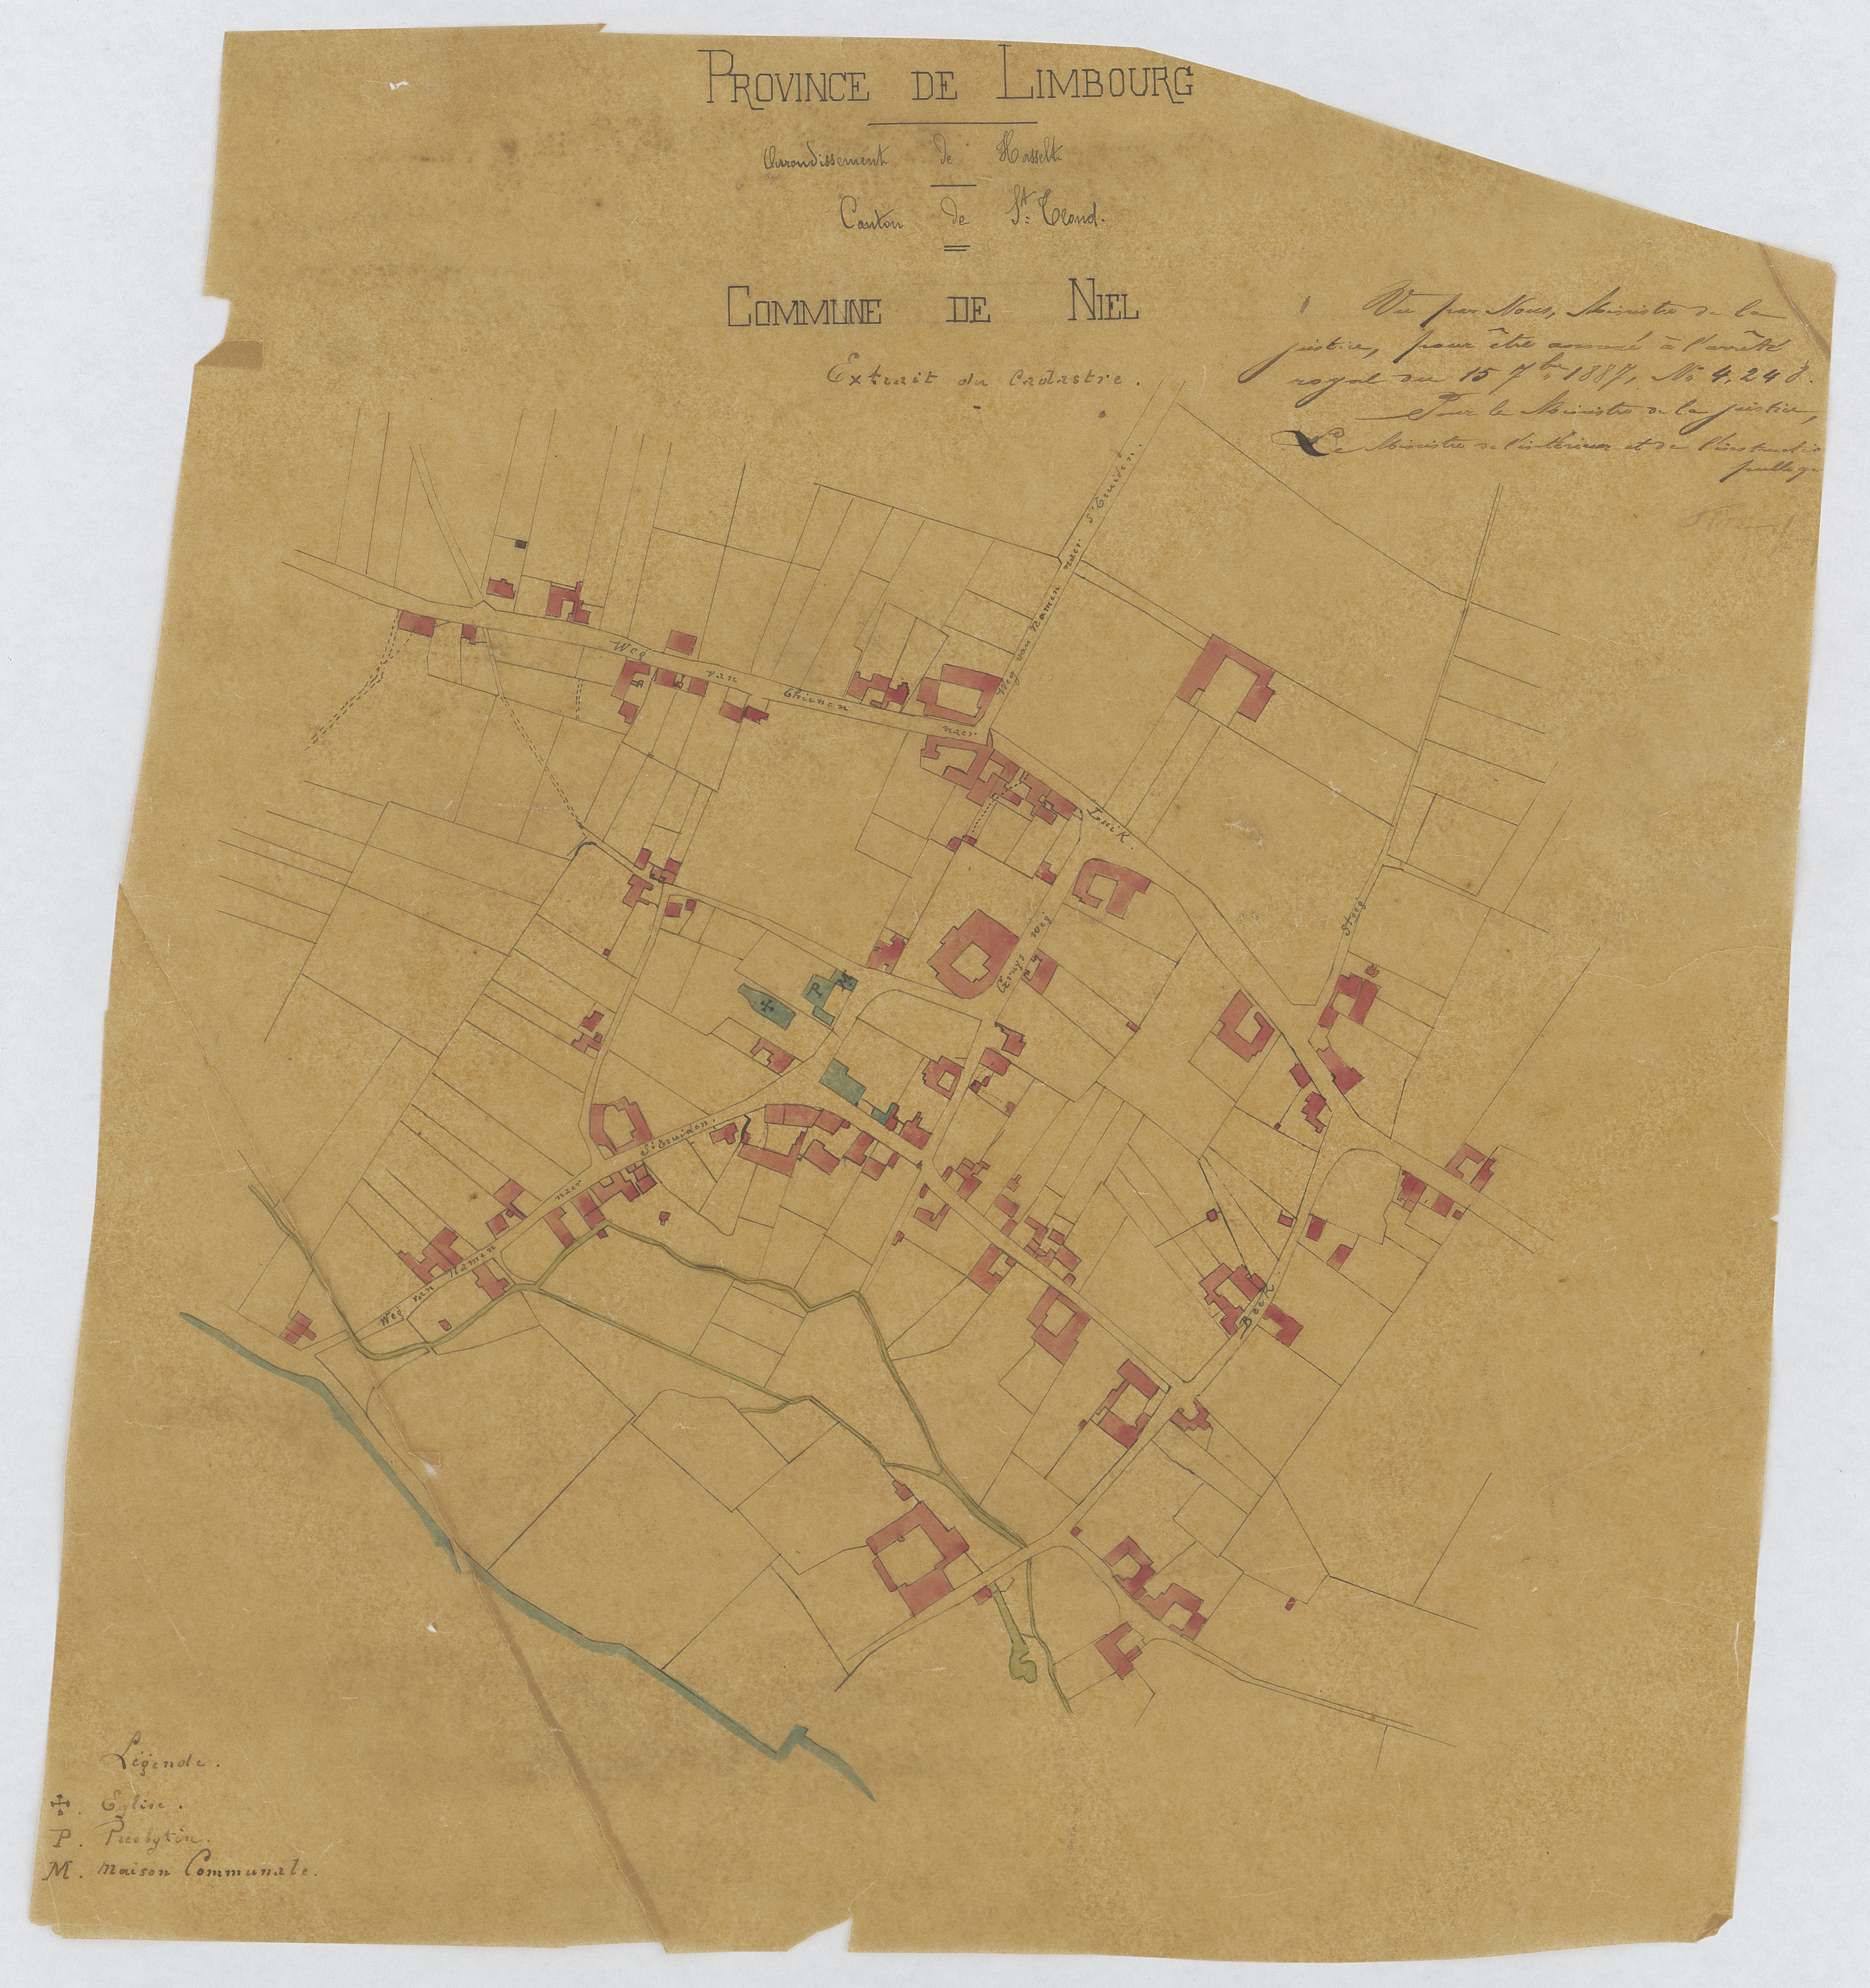 PROVINCE DE LIMBOURG
Arrondissement de Hasselt
Canton de St. Trond.
COMMUNE DE NIEL
Extrait du Cadastre.
Vu par Nous, Ministre de la
justice, pour être annexé à l'arrêté
royal du 15 7bre 1887, No 4,248.
Pour le Ministre de la justice,
Le Ministre de l'intérieur et de l'instructio
publiq
Weg van Namen naer St Truiden.
Weg van Thienen naer Luik.
Cruys weg
Steeg
P M
St Truiden.
naer
Weg van Namen
Beek
Légende.
✢. Eglise.
P. Presbytère.
M. Maison Communale.